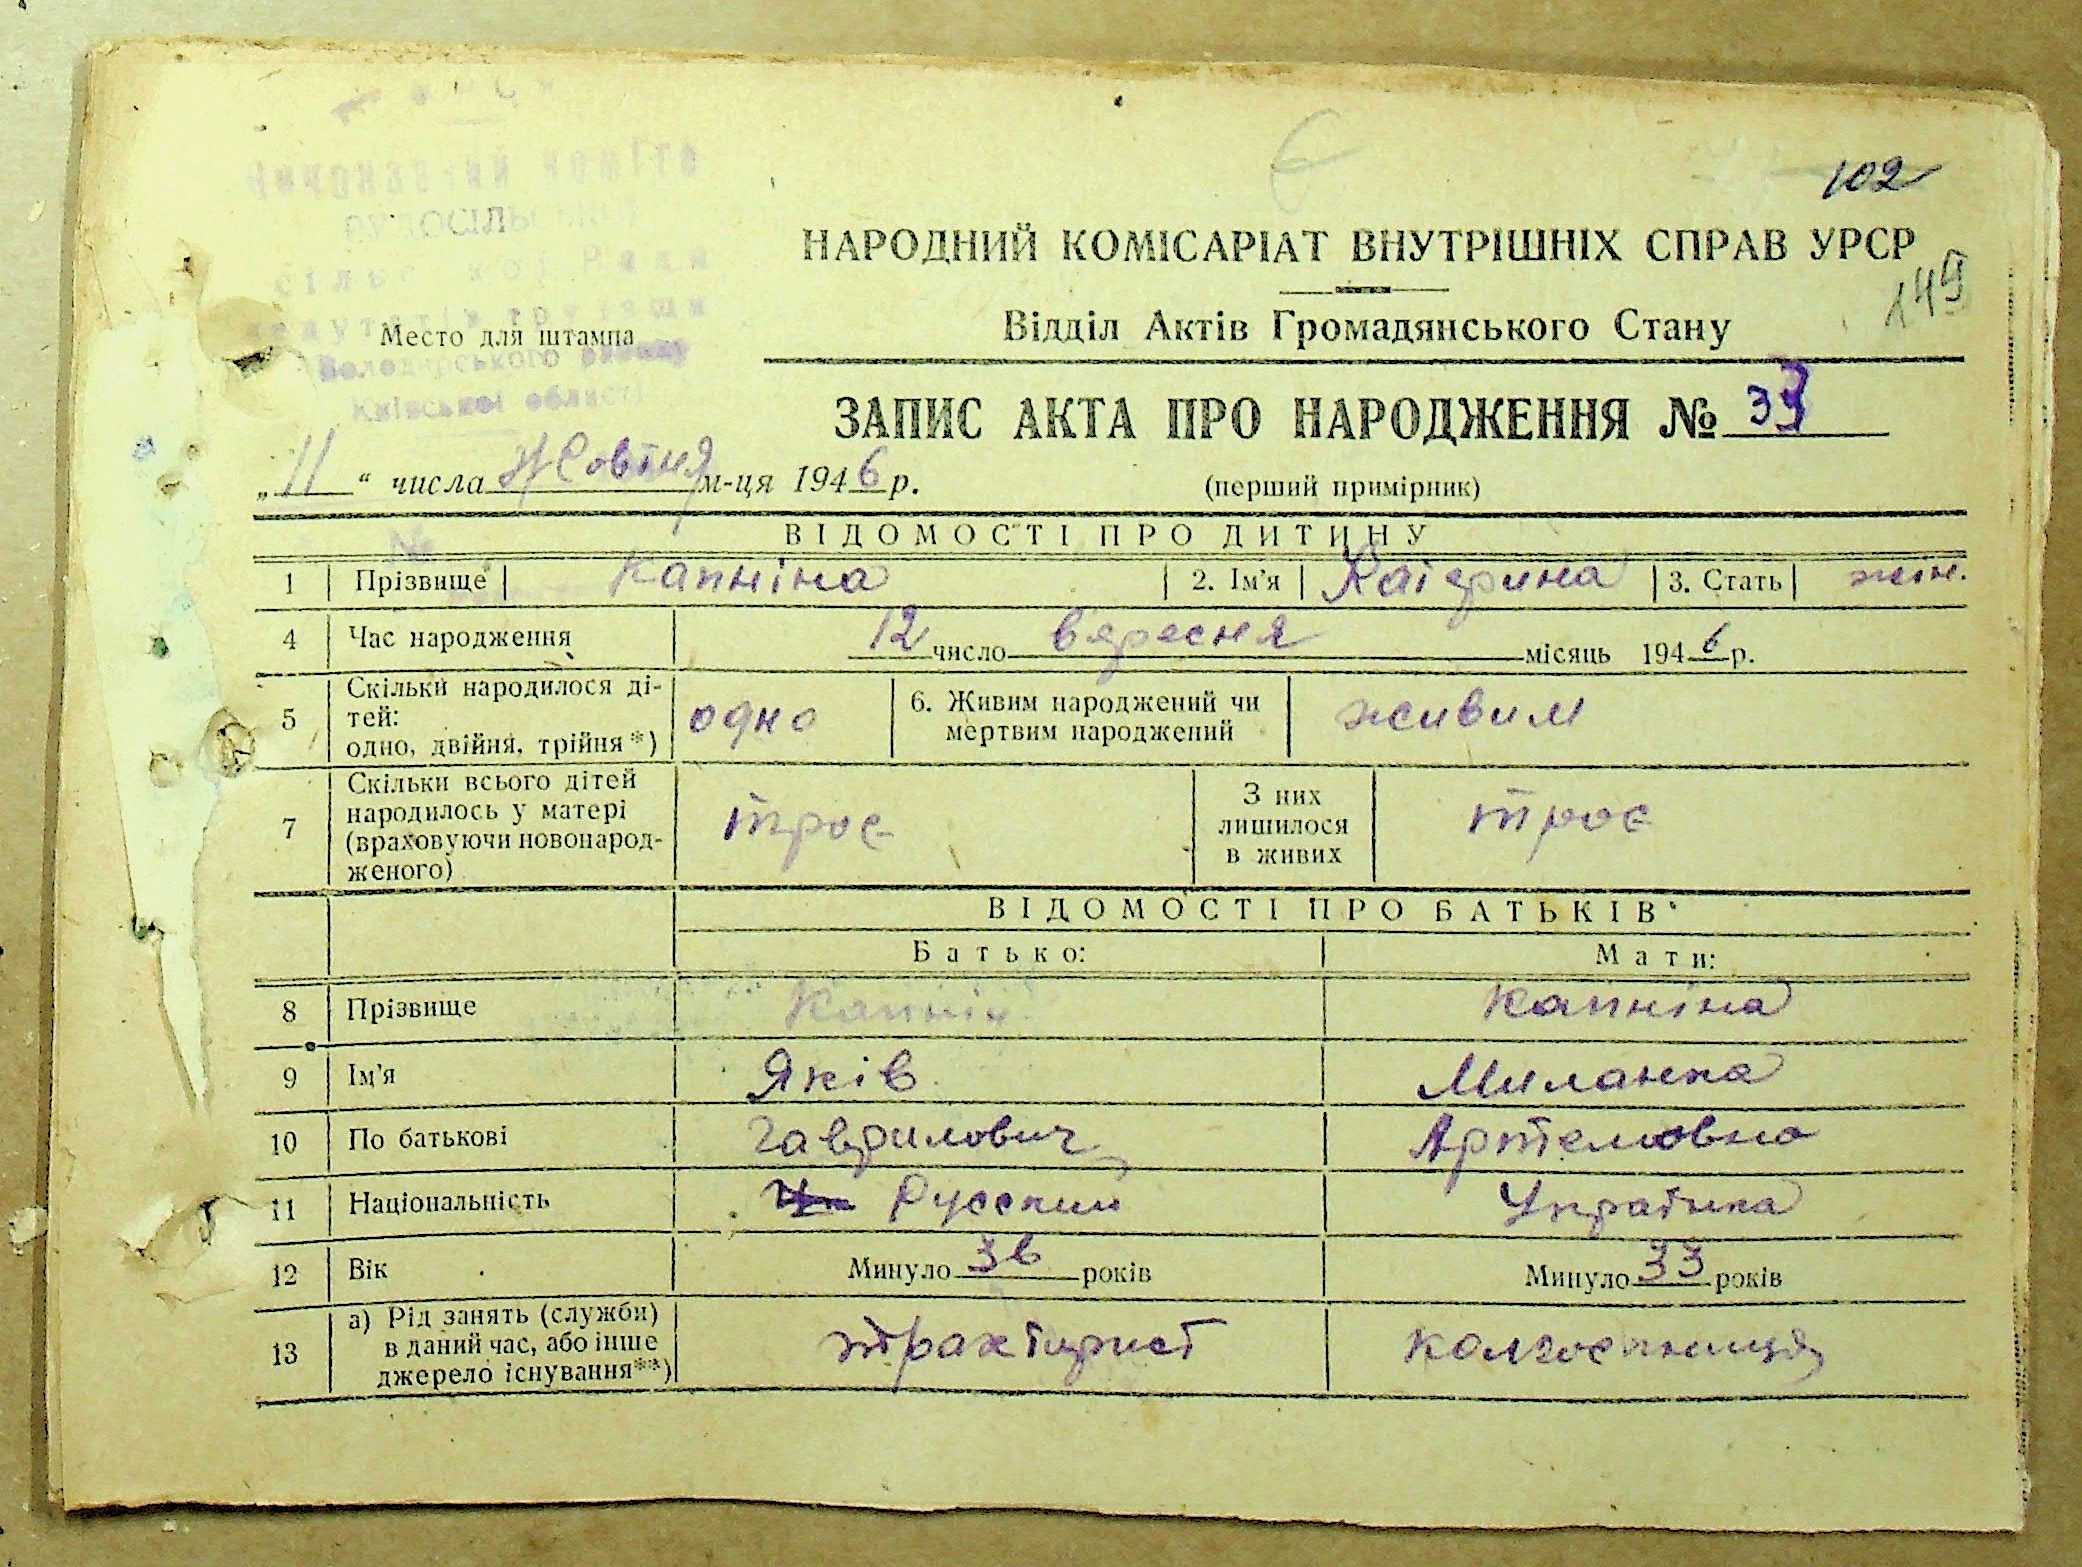 102
НАРОДНИЙ КОМІСАРІАТ ВНУТРІШНІХ СПРАВ УРСР
149
Відділ Актів Громадянського Стану
Место для штампа
Володарського району
Київської області
ЗАПИС АКТА ПРО НАРОДЖЕННЯ № 33
„11“ числа Жовтня м-ця 1946 р.
(перший примірник)
ВІДОМОСТІ ПРО ДИТИНУ
1 Прізвище Капніна 2. Ім'я Катерина 3. Стать жін.
4 Час народження 12 число вересня місяць 1946 р.
5 Скільки народилося ді-
тей:
одно, двійня, трійня*) одно 6. Живим народжений чи
мертвим народжений живим
7 Скільки всього дітей
народилось у матері
(враховуючи новонарод-
женого) троє З них
лишилося
в живих троє
ВІДОМОСТІ ПРО БАТЬКІВ
Батько: Мати:
8 Прізвище Капнін Капніна
9 Ім'я Яків Миланка
10 По батькові Гаврилович Артемовна
11 Національність Русский Українка
12 Вік Минуло 36 років Минуло 33 років
13 а) Рід занять (служби)
в даний час, або інше
джерело існування**) трактурист колгоспниця